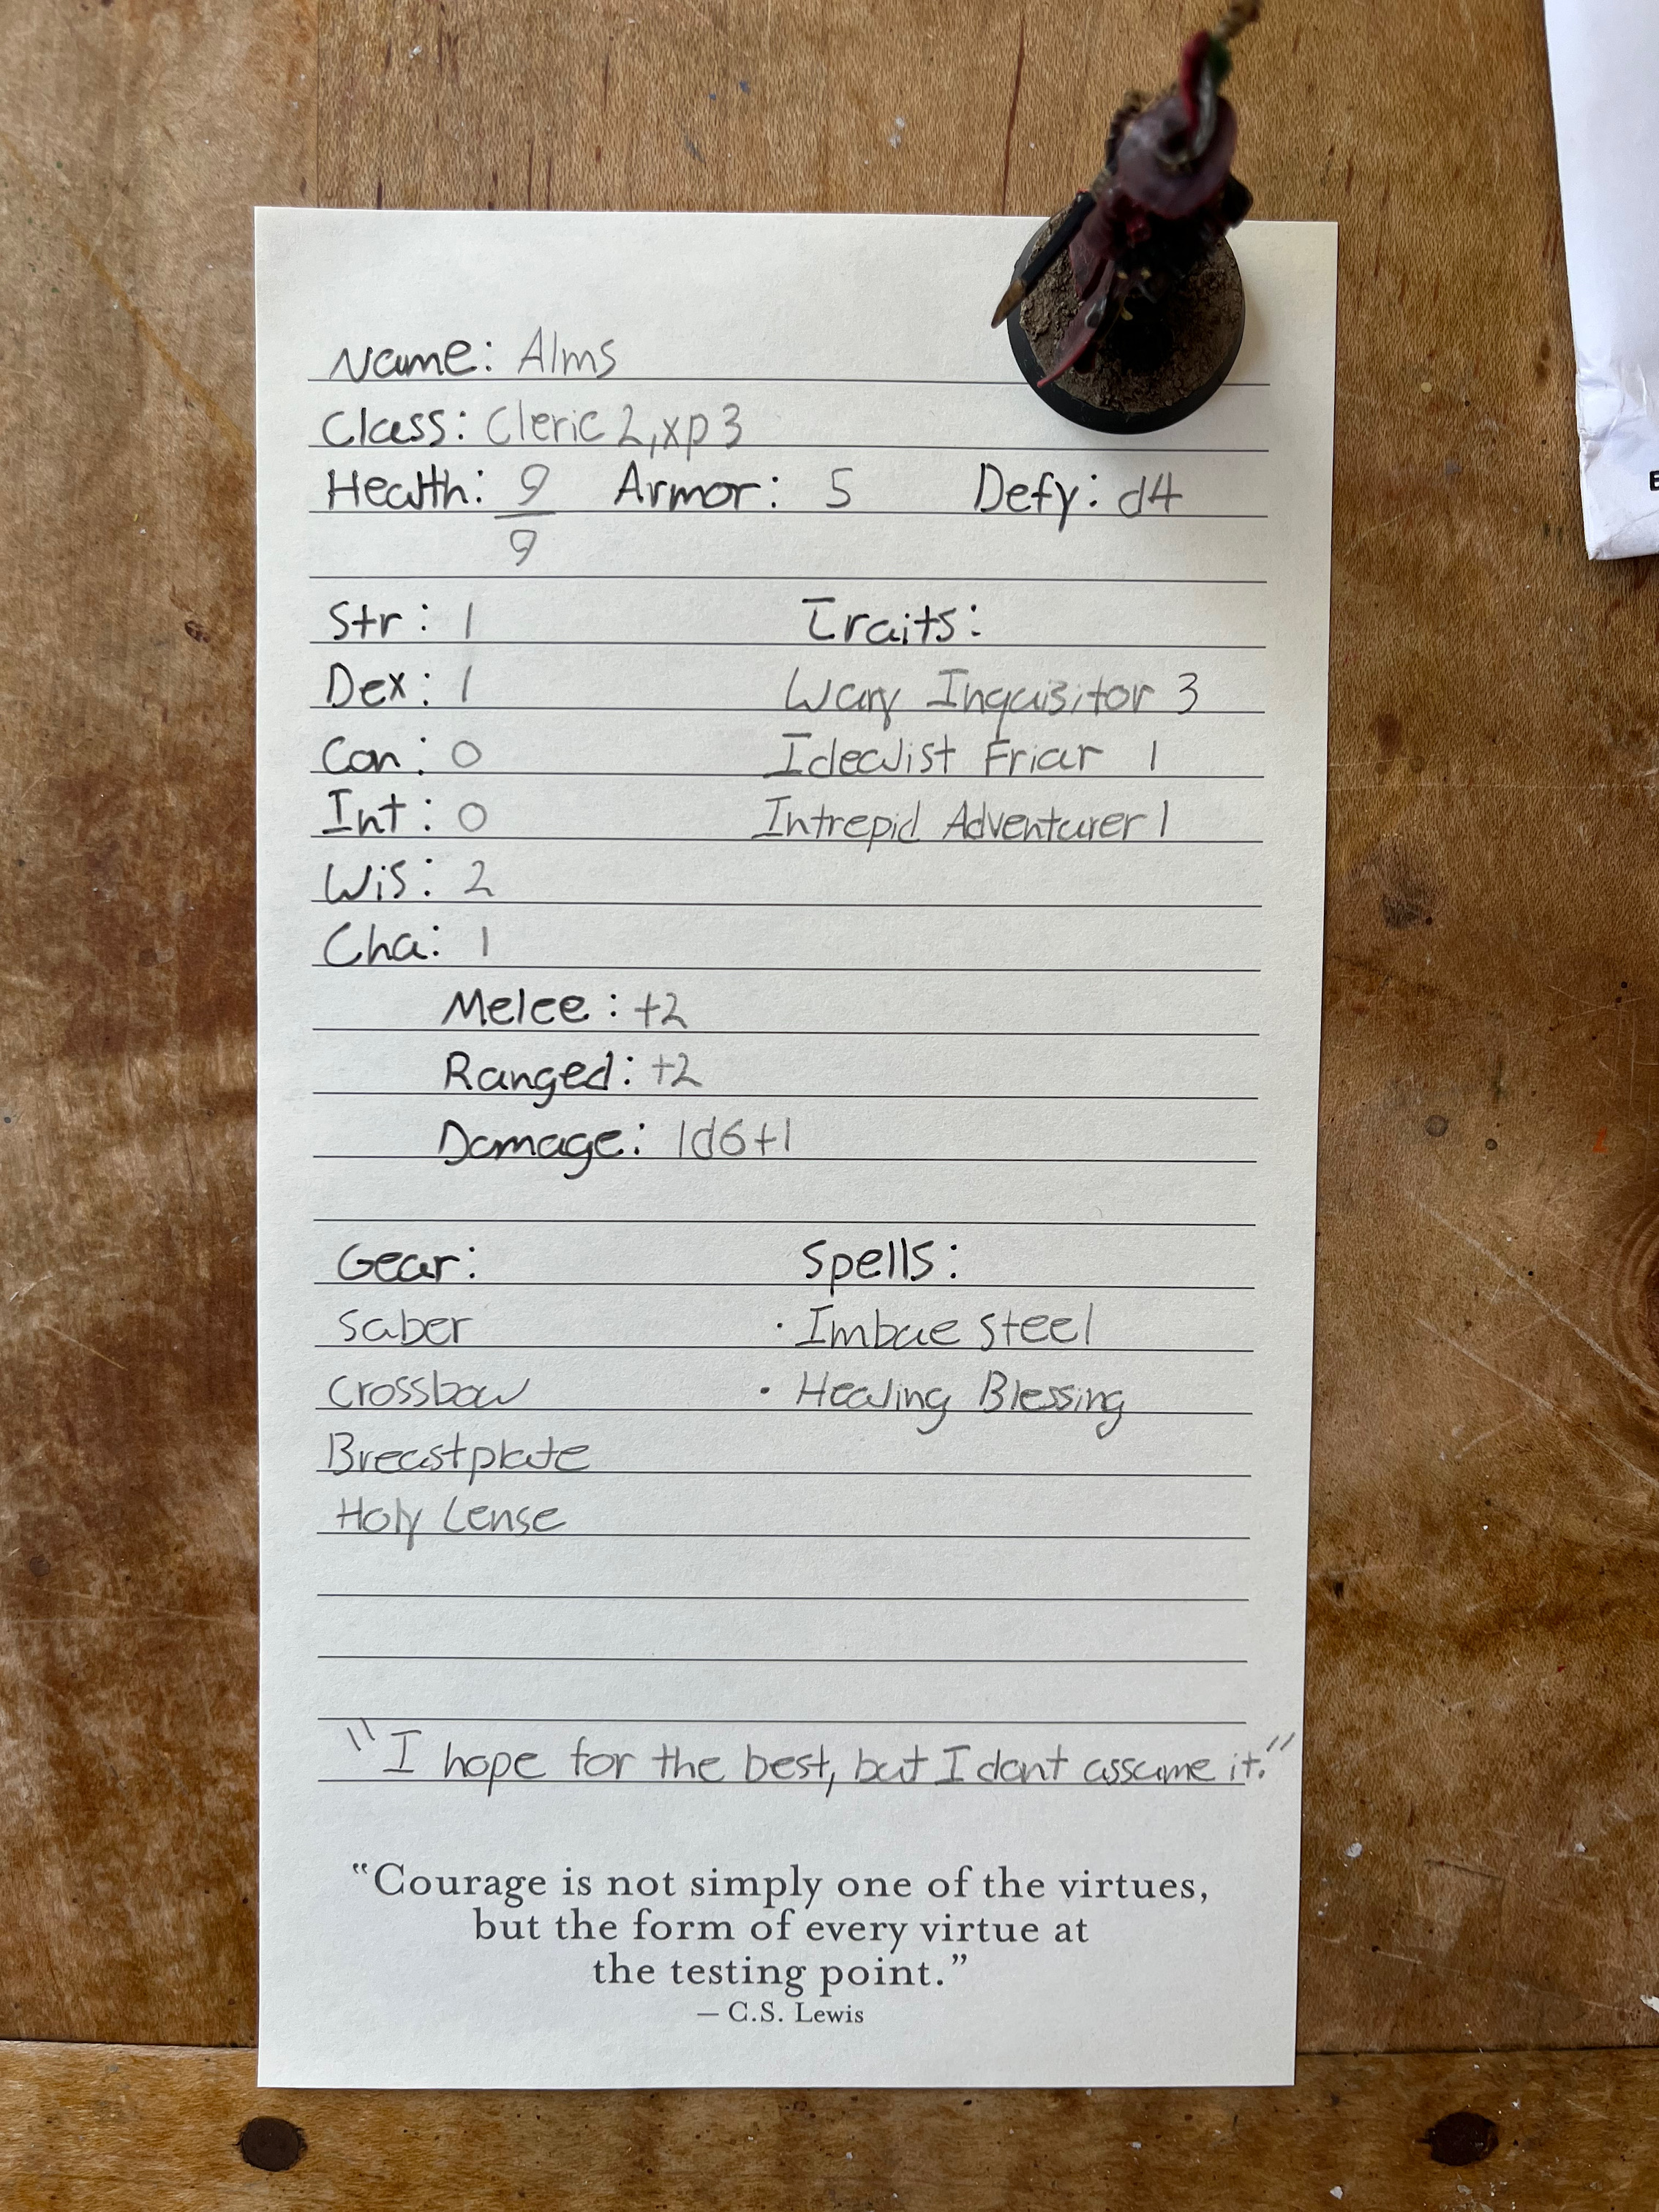 Name: Alms
Class: Cleric 2, xp 3
Health: 9 Armor: 5 Defy: d4
9
Str: 1 Traits:
Dex: 1 Wary Inquisitor 3
Con: 0 Idealist Friar 1
Int: 0 Intrepid Adventurer 1
Wis: 2
Cha: 1
Melee: +2
Ranged: +2
Damage: 1d6+1
Gear: Spells:
Saber · Imbue Steel
Crossbow · Healing Blessing
Breastplate
Holy Lense
"I hope for the best, but I dont assume it."
"Courage is not simply one of the virtues,
but the form of every virtue at
the testing point."
— C.S. Lewis